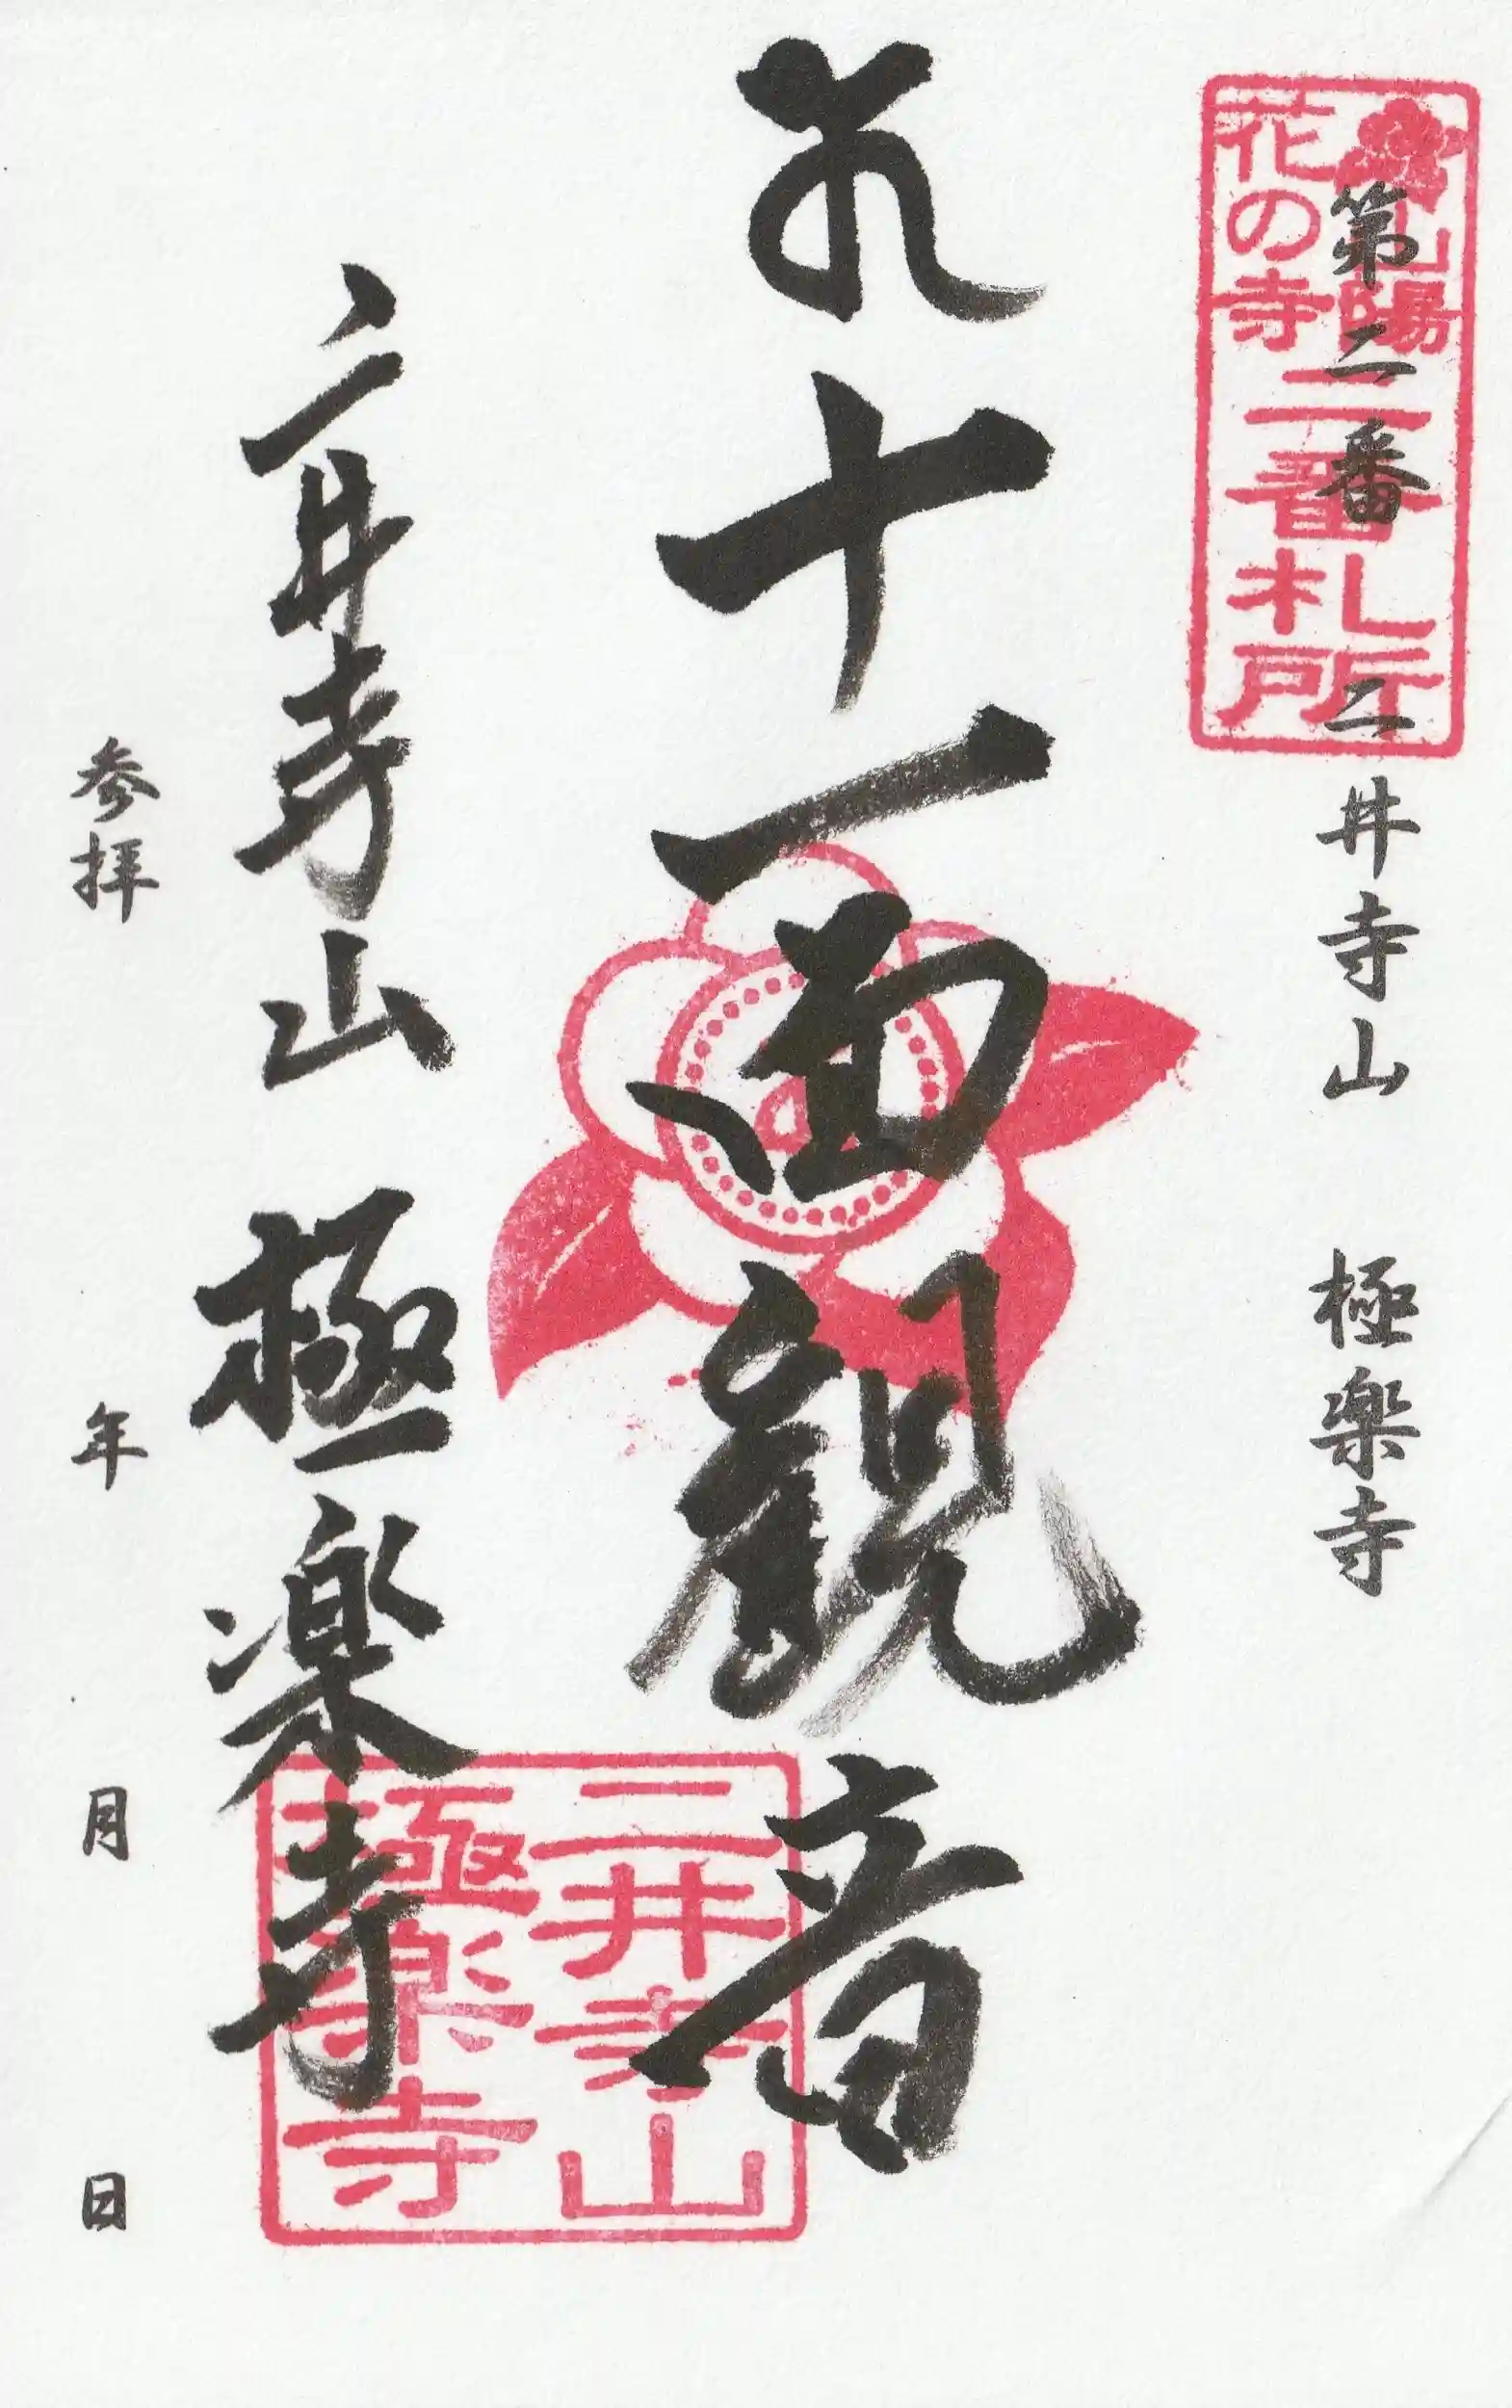 山陽
花の寺
二番札所
第二番 二井寺山 極楽寺
十一面観音
二井寺山
極楽寺
二井寺山 極楽寺
参拝 年 月 日